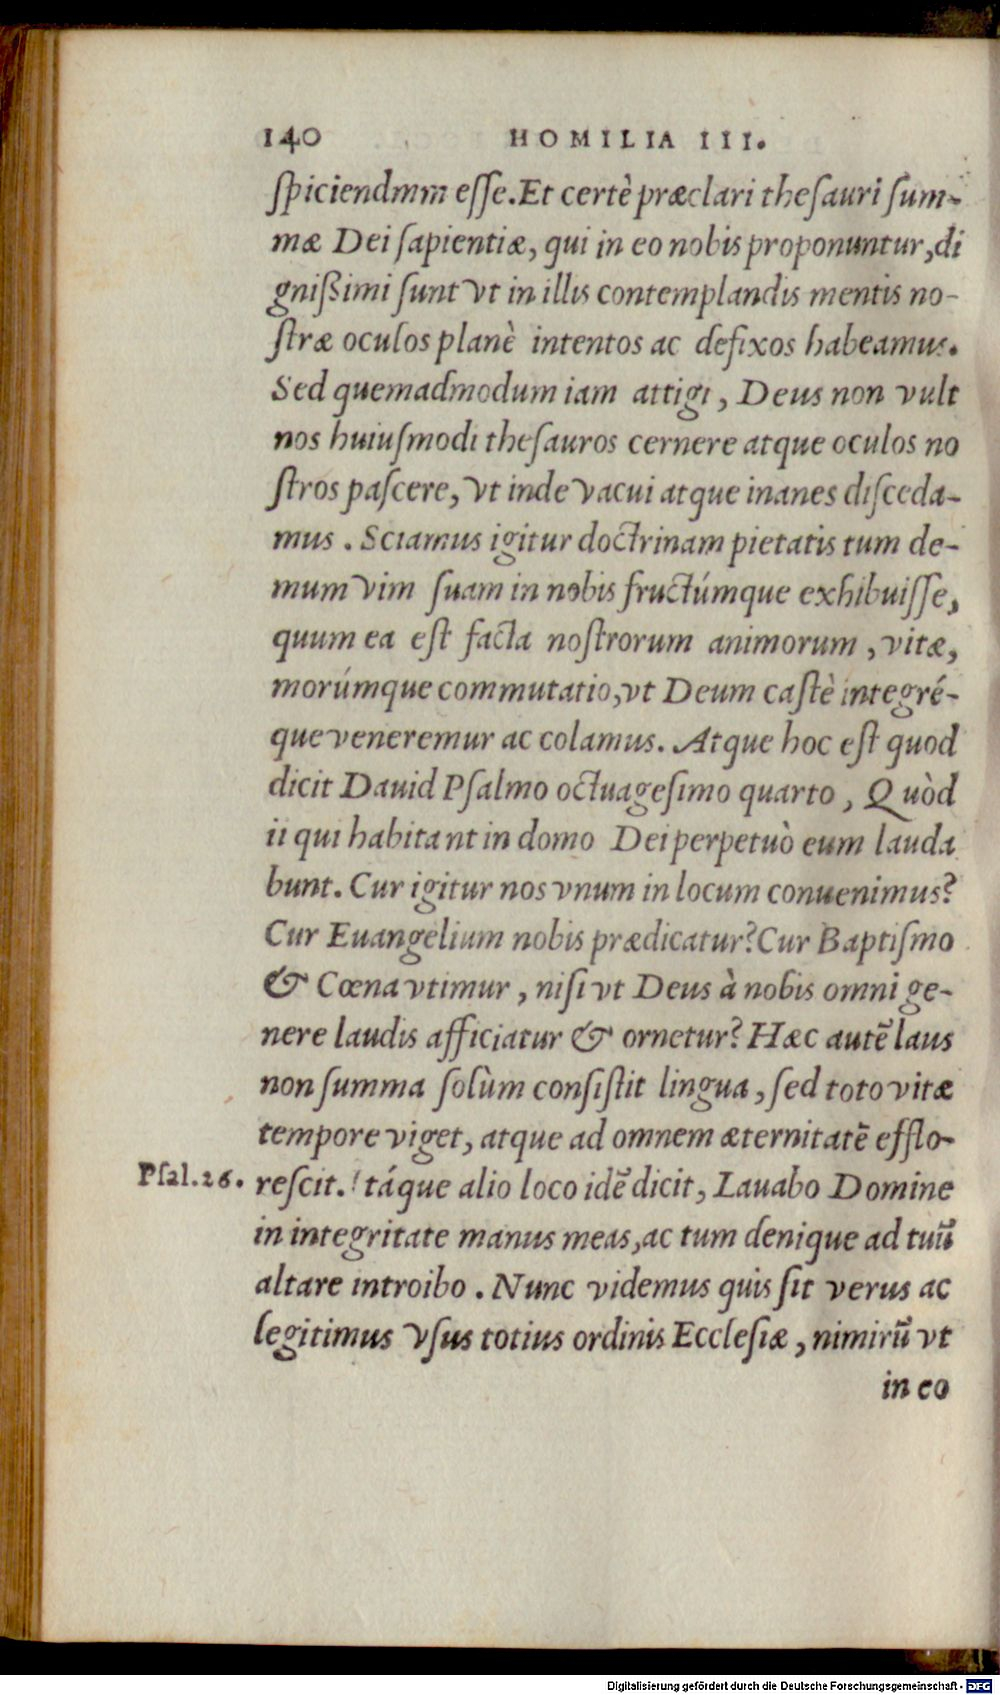 140 HOMILIA III.
ſpiciendmm eſſe. Et certè præclari theſauri ſum-
mæ Dei ſapientiæ, qui in eo nobis proponuntur, di
gniſſimi ſunt vt in illis contemplandis mentis no-
ſtræ oculos planè intentos ac defixos habeamus.
Sed quemadmodum iam attigi, Deus non vult
nos huiuſmodi theſauros cernere atque oculos no
ſtros paſcere, vt inde vacui atque inanes diſceda-
mus. Sciamus igitur doctrinam pietatis tum de-
mum vim ſuam in nobis fructúmque exhibuiſſe,
quum ea eſt facta noſtrorum animorum, vitæ,
morúmque commutatio, vt Deum caſtè integré-
que veneremur ac colamus. Atque hoc eſt quod
dicit Dauid Pſalmo octuageſimo quarto, Quòd
ii qui habitant in domo Dei perpetuò eum lauda
bunt. Cur igitur nos vnum in locum conuenimus?
Cur Euangelium nobis prædicatur? Cur Baptiſmo
& Cœna vtimur, niſi vt Deus à nobis omni ge-
nere laudis afficiatur & ornetur? Hæc autē laus
non ſumma ſolùm conſiſtit lingua, ſed toto vitæ
tempore viget, atque ad omnem æternitatē efflo-
Pſal.26. reſcit. Itáque alio loco idē dicit, Lauabo Domine
in integritate manus meas, ac tum denique ad tuū
altare introibo. Nunc videmus quis ſit verus ac
legitimus vſus totius ordinis Eccleſiæ, nimirū vt
in eo
Digitalisierung gefördert durch die Deutsche Forschungsgemeinschaft - DFG